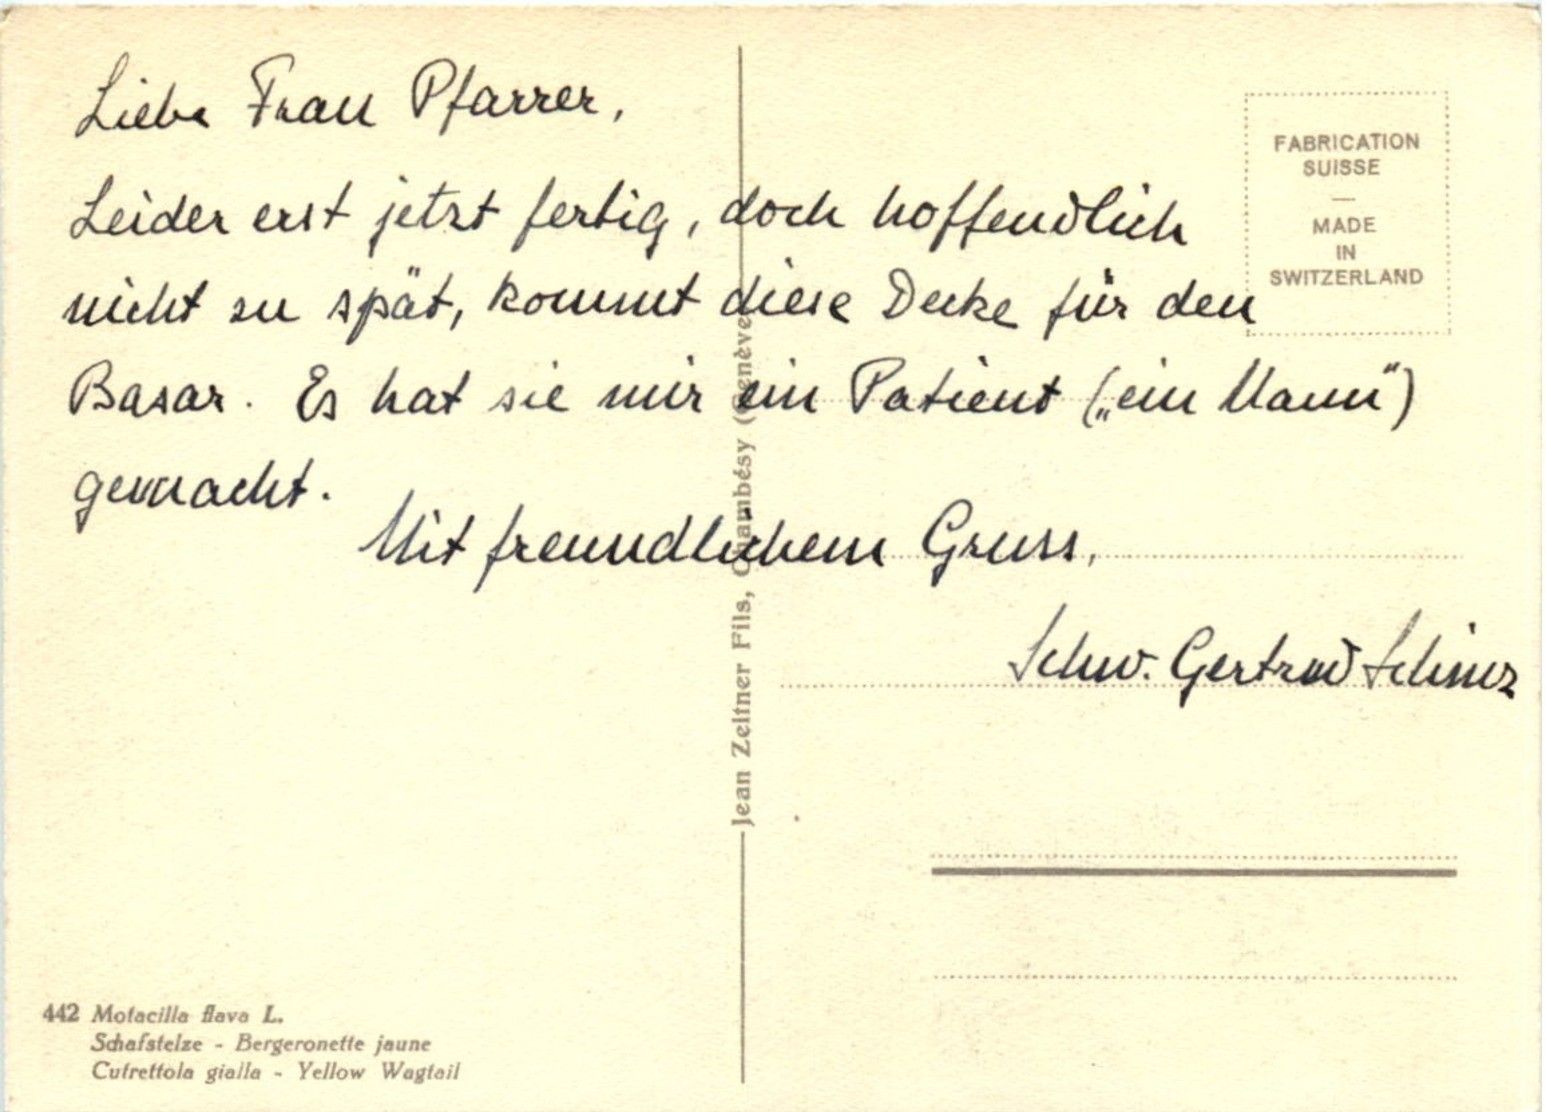 Liebe Frau Pfarrer,
Leider erst jetzt fertig, doch hoffendlich
nicht zu spät, kommt diese Decke für den
Basar. Es hat sie mir ein Patient („ein Mann“)
gemacht.
Mit freundlichem Gruss,
Schw. Gertrud Schinz
FABRICATION
SUISSE
—
MADE
IN
SWITZERLAND
Jean Zeltner Fils, Chambésy (Genève)
442 Motacilla flava L.
Schafstelze - Bergeronette jaune
Cutrettola gialla - Yellow Wagtail